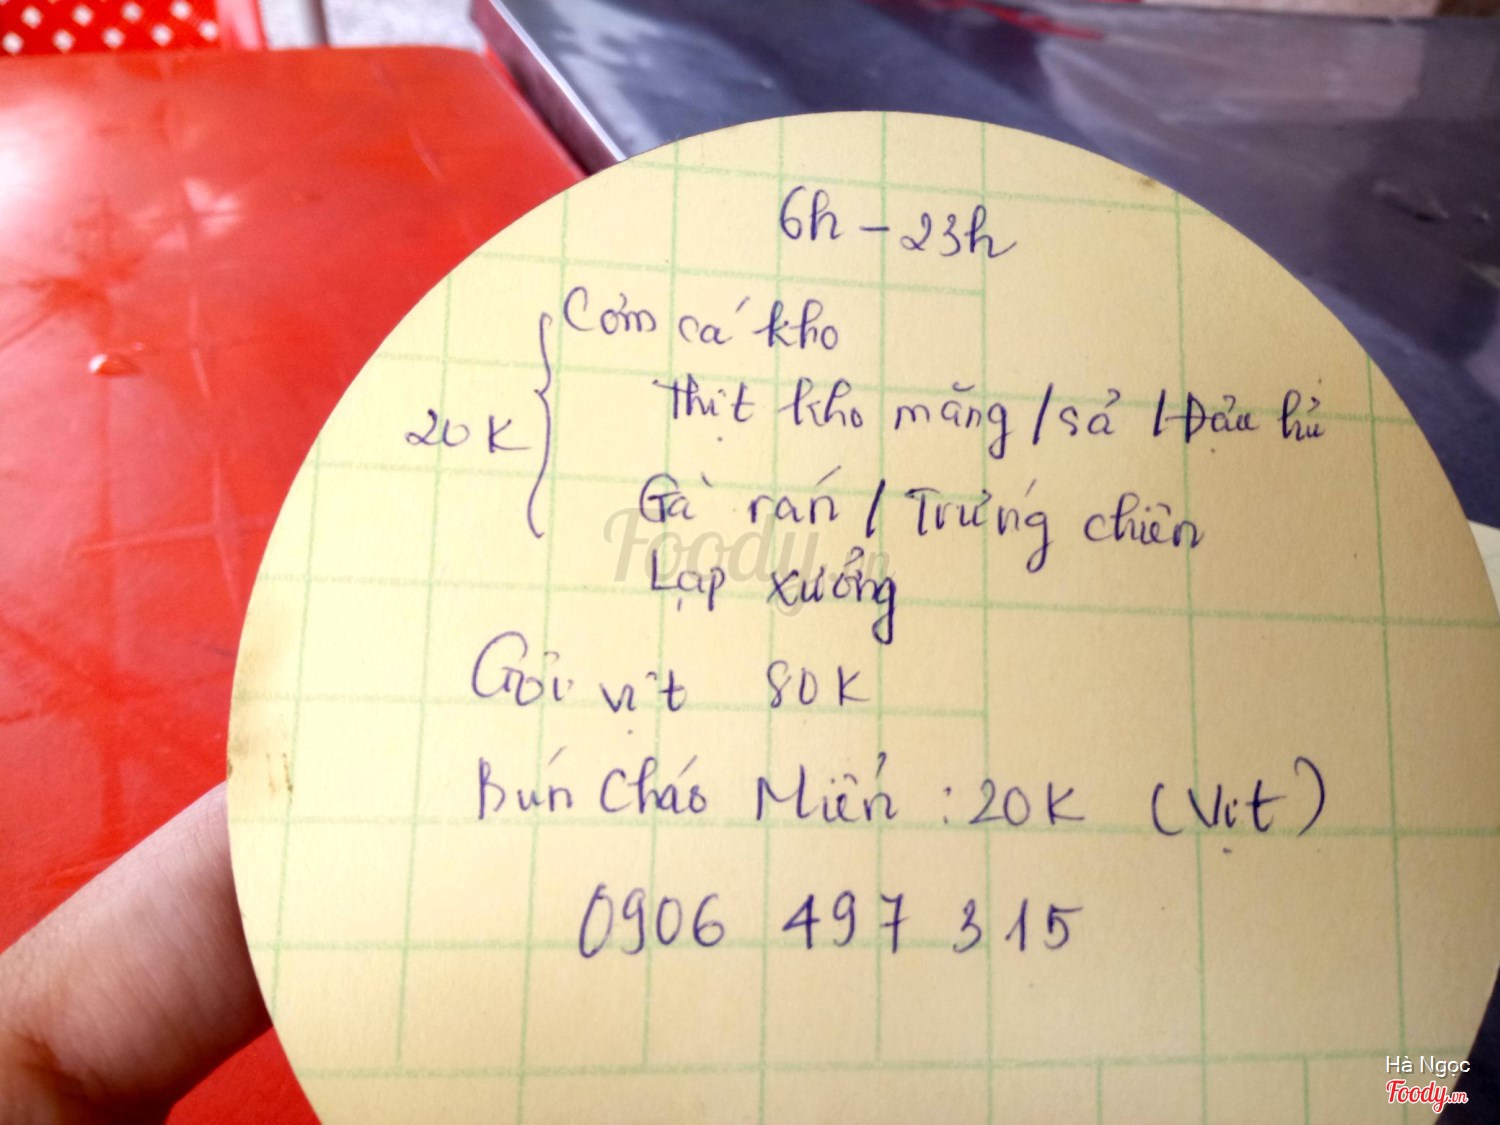 6h - 23h
Cơm cá kho
20K { Thịt kho măng / sả / Đậu hủ
Gà rán / Trứng chiên
Lạp xưởng
Gỏi vịt 80K
Bún Cháo Miến : 20K (Vịt)
0906 497 315
Foody.vn
Hà Ngọc
Foody.vn